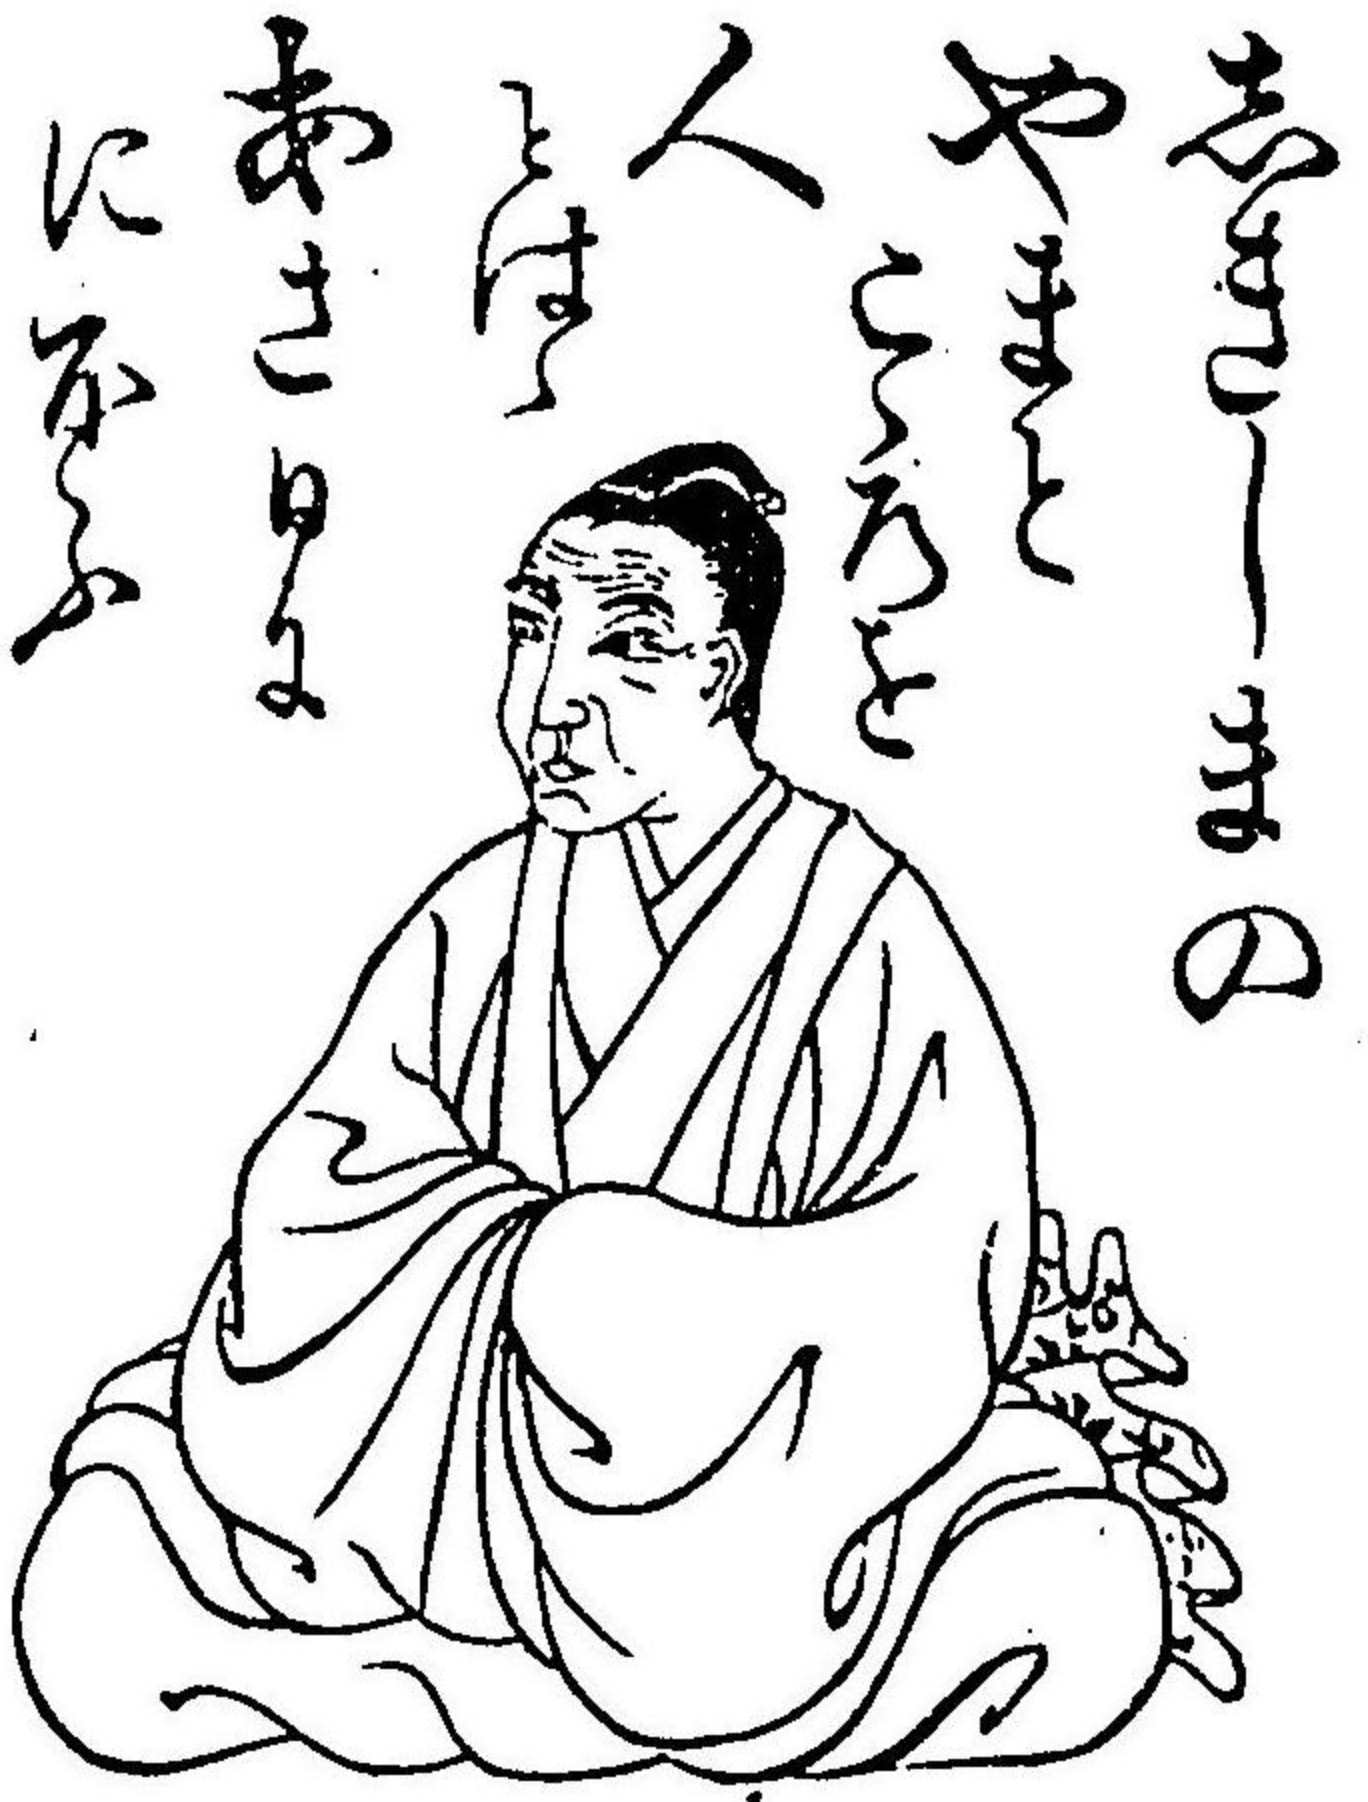 志きしまの
やまと
こゝろを
人
とはゝ
あさ日に
にほふ